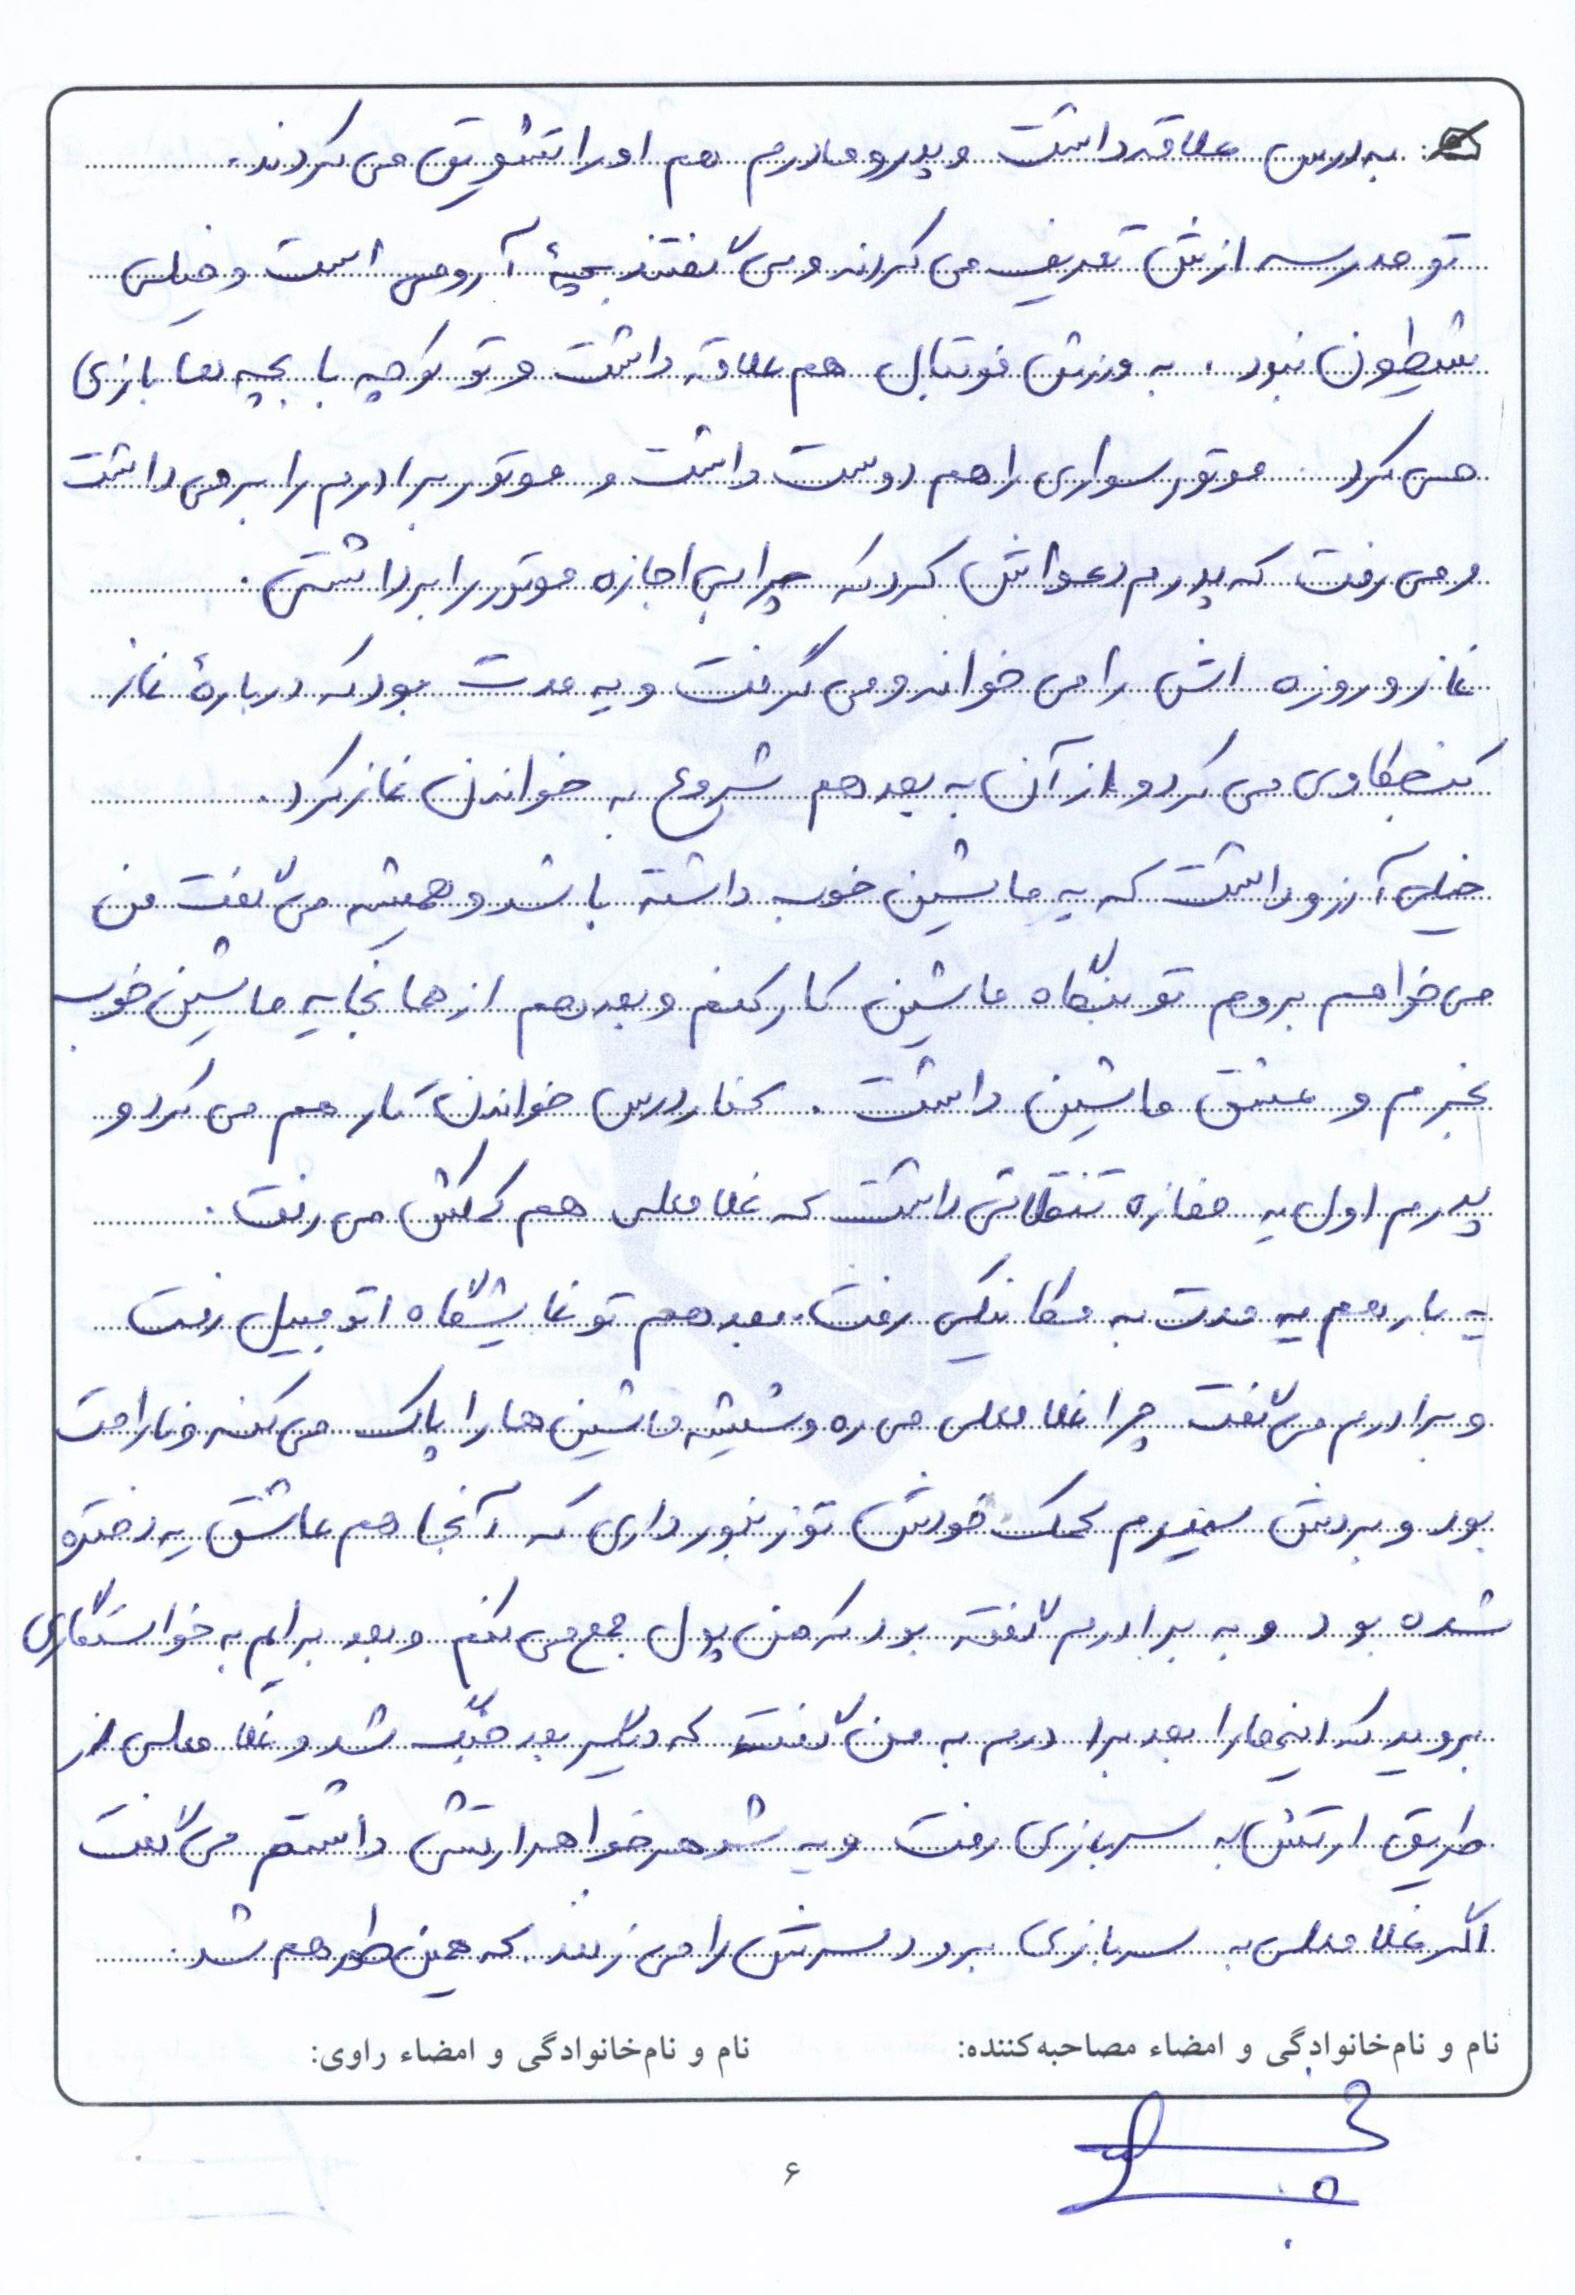 به درس علاقه داشت و پدر و مادرم هم او را تشویق می کردند.
تو مدرسه ازش تعریف می کردند و می گفتند بچۀ آرومی است و خیلی
شیطون نبود. به ورزش فوتبال هم علاقه داشت و تو کوچه با بچه ها بازی
می کرد. موتور سواری را هم دوست داشت و موتور برادرم را بر می داشت
و می رفت که پدرم دعواش کرد که چرا بی اجازه موتور را برداشتی.
نماز و روزه اش را می خواند و می گرفت و یه مدت بود که دربارۀ نماز
کنجکاوی می کرد و از آن به بعد هم شروع به خواندن نماز کرد.
خیلی آرزو داشت که یه ماشین خوب داشته باشد و همیشه می گفت من
می خواهم بروم تو بنگاه ماشین کار کنم و بعد هم از همانجا یه ماشین خوب
بخرم و عشق ماشین داشت. کنار درس خواندن کار هم می کرد و
پدرم اول یه مغازه تنقلاتی داشت که غلامعلی هم کمکش می رفت.
یه بار هم یه مدت به مکانیکی رفت. بعد هم تو نمایشگاه اتومبیل رفت
و برادرم می گفت چرا غلامعلی می ره و شیشه ماشین ها را پاک می کنه و ناراحت
بود و بردش سمیرم کمک خودش تو زنبورداری که آنجا هم عاشق یه دختره
شده بود و به برادرم گفته بود که من پول جمع می کنم و بعد برایم به خواستگاری
بروید که اینها را بعد برادرم به من گفت که دیگر بعد جنگ شد و غلامعلی از
طریق ارتش به سربازی رفت و یه شوهر خواهر ارتشی داشتم می گفت
اگر غلامعلی به سربازی برود سرش را می زنند. که همین طور هم شد.
نام و نام‌خانوادگی و امضاء مصاحبه‌کننده:
نام و نام‌خانوادگی و امضاء راوی:
۶